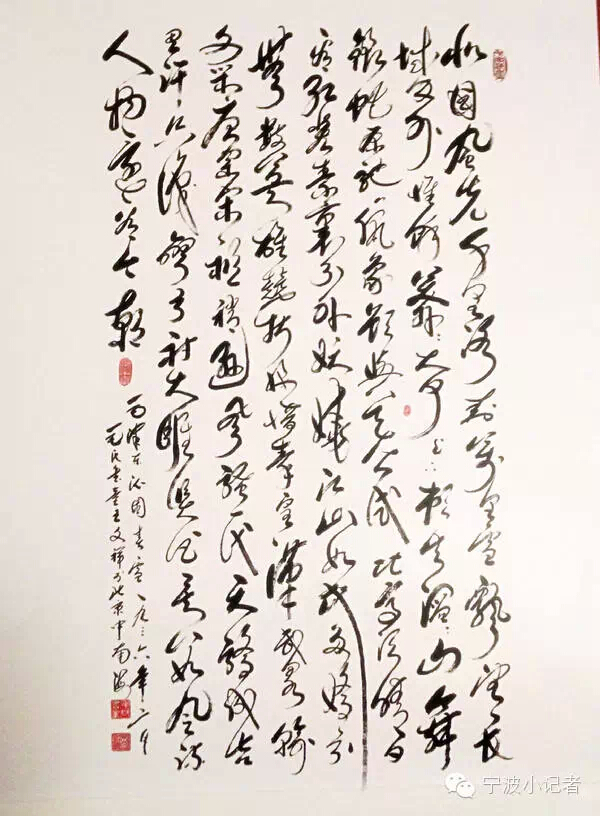 北国风光千里冰封万里雪飘望长
城内外惟余莽莽大河上下顿失滔滔山舞
银蛇原驰蜡象欲与天公试比高须晴日
看红装素裹分外妖娆江山如此多娇引
无数英雄竞折腰惜秦皇汉武略输
文采唐宗宋祖稍逊风骚一代天骄成吉
思汗只识弯弓射大雕俱往矣数风流
人物还看今朝
毛泽东沁园春雪一九三六年二月
毛氏书童王文祥于北京中南海
宁波小记者